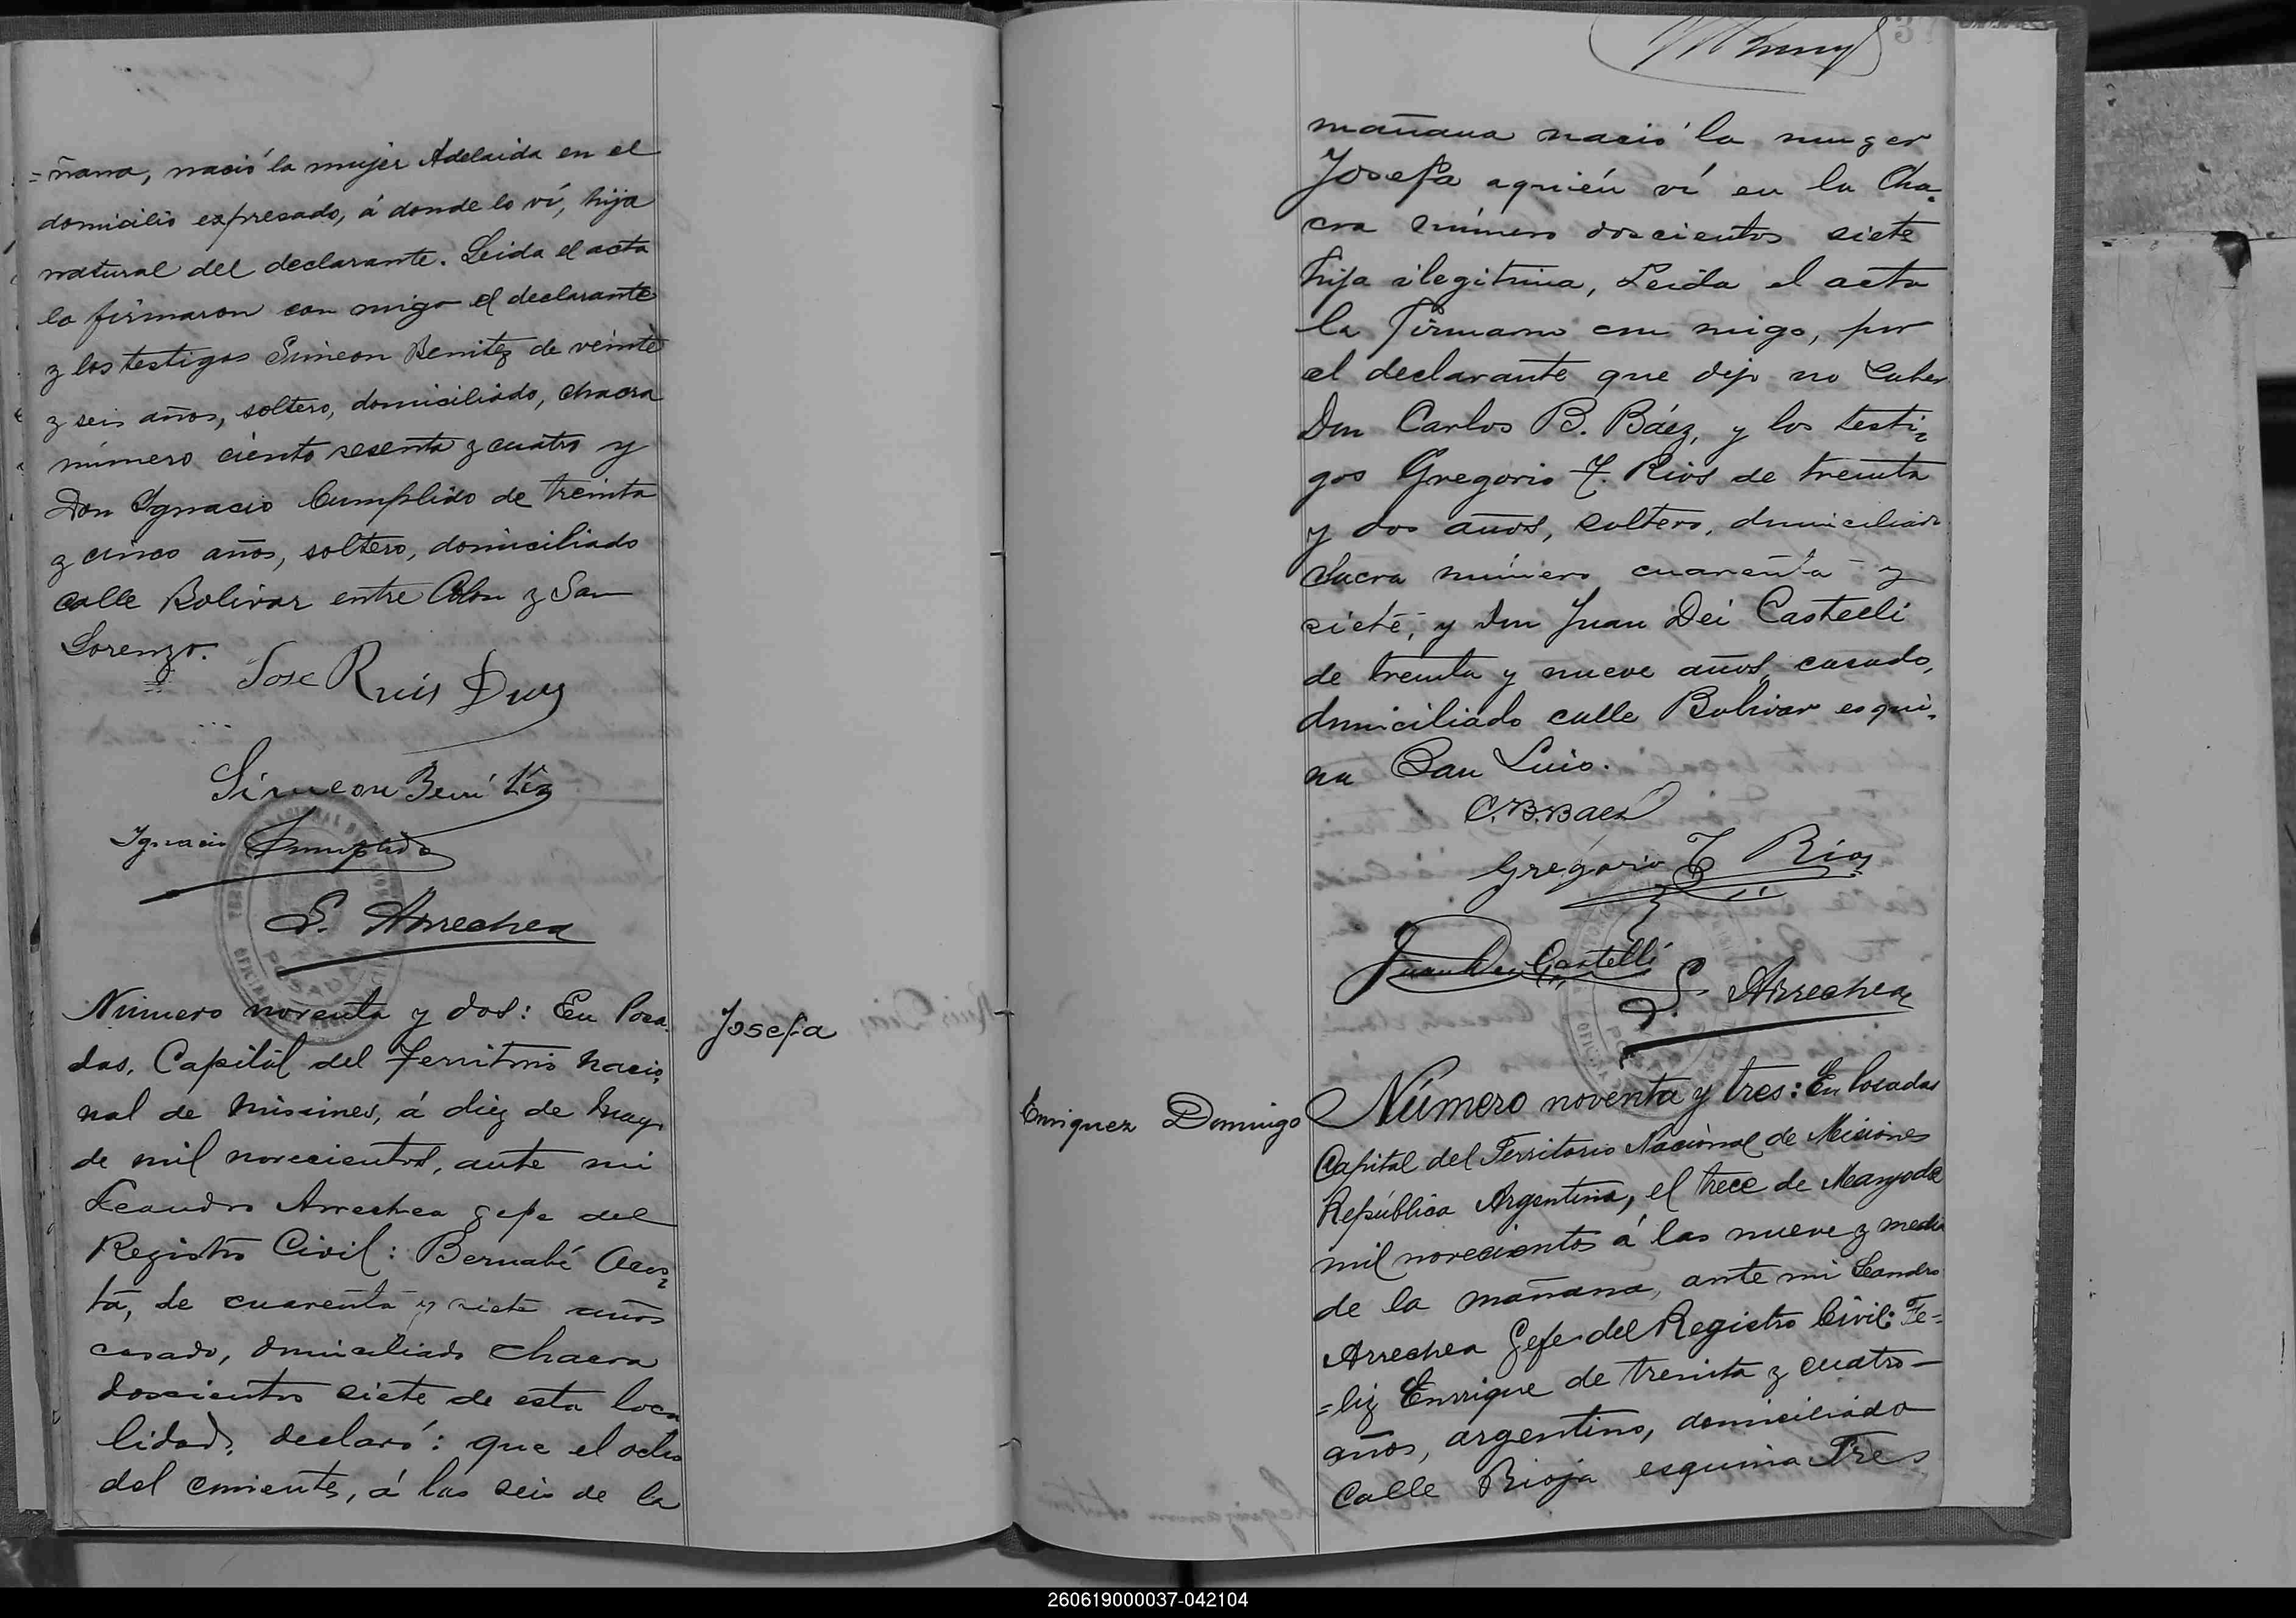 =ñana, nació la mujer Adelaida en el
domicilio expresado, á donde lo ví, hija
natural del declarante. Leida el acta
la firmaron con migo el declarante
y los testigos Simeon Benitez de veinte
y seis años, soltero, domiciliado, chacra
número ciento sesenta y cuatro y
Don Ignacio Cumplido de treinta
y cinco años, soltero, domiciliado
calle Bolivar entre Colon y San
Lorenzo.
Jose Ruis Diaz
Simeon Benitez
Ignacio Cumplido
L. Arrechea
Número noventa y dos: En Posa-
das, Capital del Territorio Nacio-
nal de Misiones, á diez de Mayo
de mil novecientos, ante mi
Leandro Arrechea gefe del
Registro Civil: Bernabé Acos-
ta, de cuarenta y siete años
casado, domiciliado chacra
doscientos siete de esta loca
lidad, declaró: que el ocho
del corriente, á las seis de la
Josefa
mañana nació la muger
Josefa aquién ví en la Cha-
cra número doscientos siete
hija ilegitima, Leida el acta
la firmaron con migo, por
el declarante que dijo no saber
Don Carlos B. Báez, y los testi-
gos Gregorio F. Rios de treinta
y dos años, soltero, domiciliado
chacra número cuarenta y
siete, y don Juan Dei Castelli
de treinta y nueve años, casado,
domiciliado calle Bolivar esqui-
na San Luis.
C.B.Baez
Gregorio F Rios
Juan Dei Castelli
L. Arrechea
Enriquez Domingo
Número noventa y tres: En Posadas
Capital del Territorio Nacional de Misiones
República Argentina, el trece de Mayo de
mil novecientos á las nueve y media
de la mañana, ante mi Leandro
Arrechea Gefe del Registro Civil: Fe-
=liz Enrrique de treinta y cuatro
años, argentino, domiciliado
Calle Rioja esquina Tres
260619000037-042104